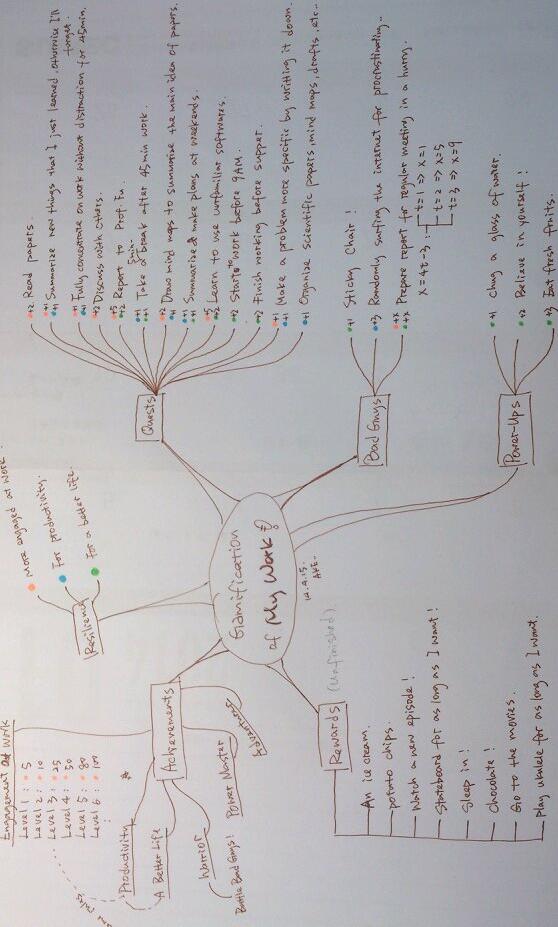 Gamification
of My Work
12.9.15.
Quests
+2 Read papers.
+1 +1 Summarize new things that I just learned, otherwise I'll
forget.
+1 +1 Fully concentrate on work without distraction for 45min.
+2 Discuss with others.
+5 +2 Report to Prof Fu.
5min
+1 +1 Take a break after 45 min work.
+2 +1 Draw mind maps to summarize the main idea of papers.
+1 +1 Summarize & make plans at weekends.
+5 +2 Learn to use unfamiliar softwares.
+2 Start to work before 9AM.
+2 Finish working before supper.
+1 +1 Make a problem more specific by writting it down.
+1 Organize scientific papers, mind maps, drafts, etc..
Bad Guys
+1 Sticky Chair!
+3 Randomly surfing the internet for procrastinating..
+x +x Prepare report for regular meeting in a hurry.
x = 4t-3,
t=1 => x=1
t=2 => x=5
t=3 => x=9
Power-Ups
+1 Chug a glass of water.
+2 Believe in yourself!
+3 Eat fresh fruits.
Resiliency
More engaged at work.
For productivity.
For a better life.
Achievements
Engagement at Work
Level 1: 5
Level 2: 10
Level 3: 25
Level 4: 50
Level 5: 80
Level 6: 100
Productivity
A Better Life
Warrior
Battle Bad Guys!
Power Master
Adventurer
Rewards (Unfinished)
An ice cream.
potato chips.
Watch a new episode!
Skateboard for as long as I want!
Sleep in!
Chocolate!
Go to the movies.
Play ukulele for as long as I want.